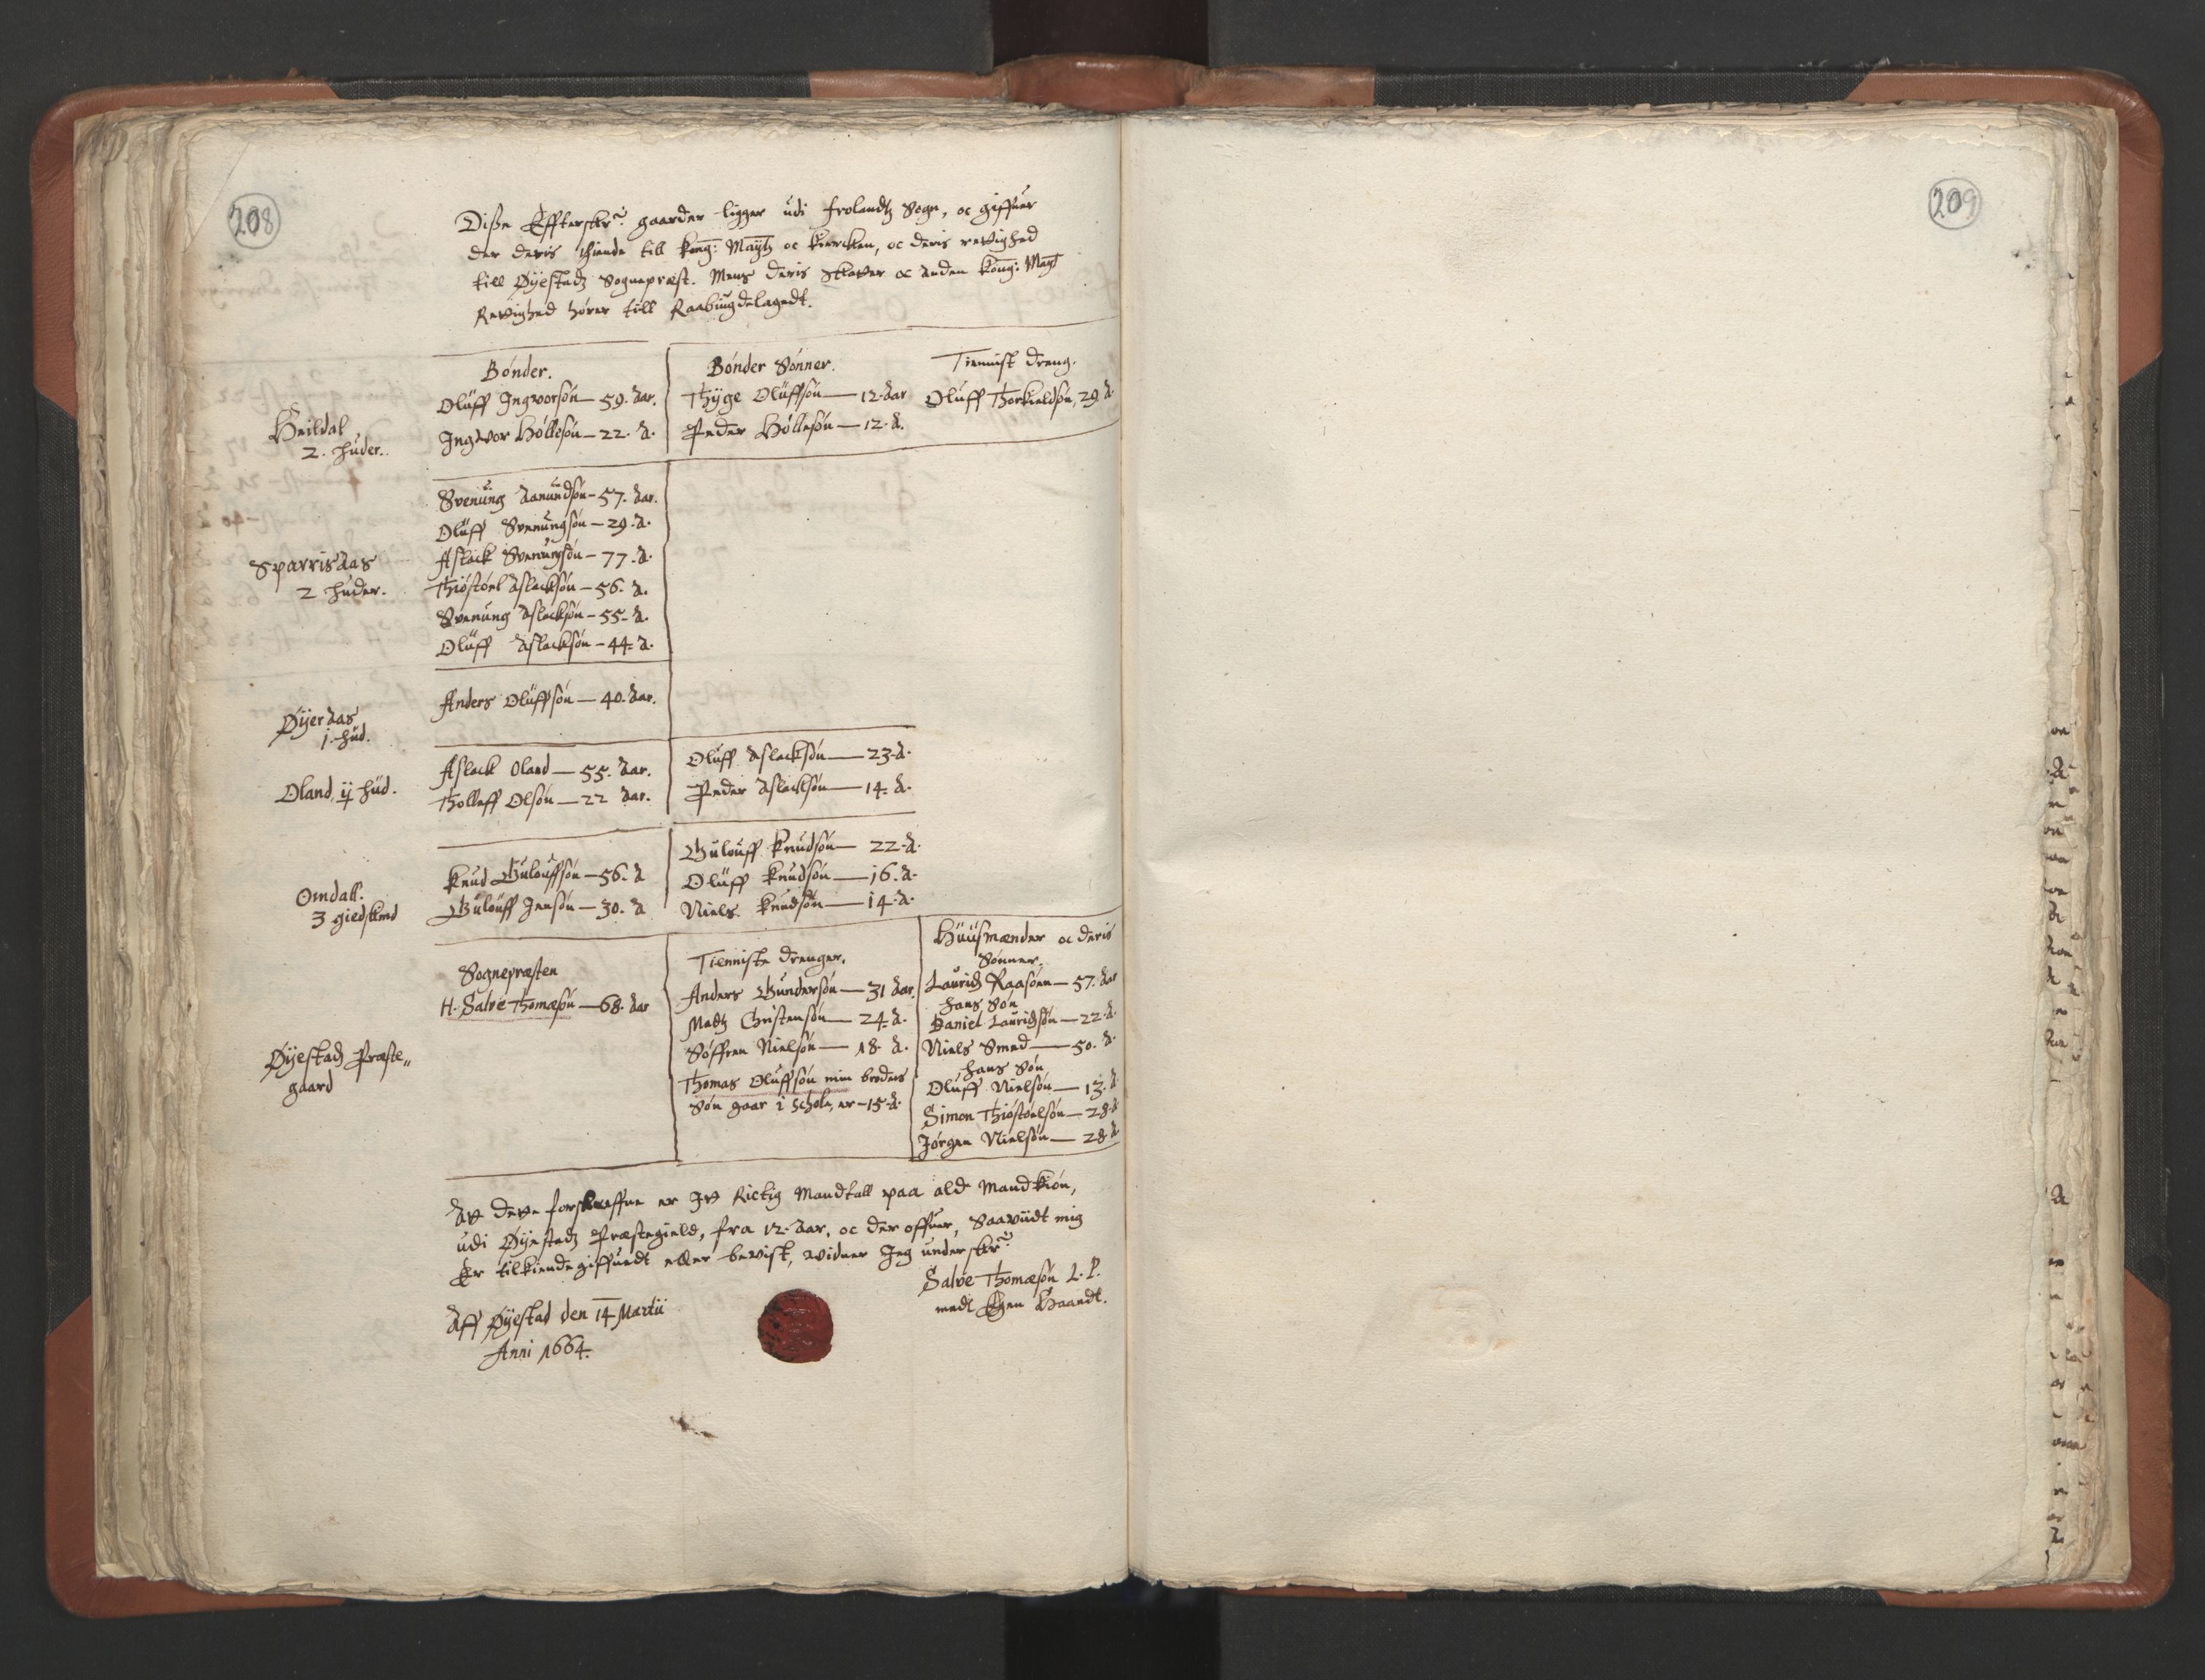 208
209
Disse Effterskr: gaarder ligger udi frolandtz Sogn, oc giffuer
der deris thiende till kong: Maytz oc kiercken, oc deris rettighed
till Øyestadz Sognepræst. Mens deris Skatter oc anden kong: Maytz
Rettighed hører till Raabügdelagedt.
Bønder.
Bønder Sønner.
Tiennist dreng.
Heildal
2. huder.
Olüff Ingvorsøn — 59. aar.
Thyge Olüffsøn — 12. aar
Olüff Thorkieldsøn, 29. A.
Ingvor Hóllesøn — 22. A.
Peder Hóllesøn — 12. A.
Sparrisaas
2 huder.
Svenüng Aanündsøn — 57. aar.
Olüff Svenüngsøn — 29. A.
Aslack Svenüngsøn — 77. A.
Thióstóel Aslacksøn — 56. A.
Svenüng Aslacksøn — 55. A.
Olüff Aslacksøn — 44. A.
Øyeraas
1. hüd.
Anders Olüffsøn — 40. aar.
Oland ij hüd.
Aslack Oland — 55. aar.
Olüff Aslacksøn — 23. A.
Tholleff Olsøn — 22 aar.
Peder Aslacksøn — 14. A.
Omdall.
3 giedskind
Knud Gulouffsøn — 56. A
Gulouff Jensøn — 30. A
Gulouff Knudsøn — 22. A.
Olüff Knudsøn — 16. A.
Niels Knudsøn — 14. A.
Øyestadz Præste„
gaard
Sognepræsten
H. Salve Thomæsøn — 68. aar
Tienniste drenger.
Anders Gundersøn — 31 aar.
Madtz Christensøn — 24. A.
Søffren Nielsøn — 18. A.
Thomas Olüffsøn min broders
Søn gaar i Schole, er — 15. A.
Hüüsmænder oc deris
Sønner.
Lauridz Raasøen — 57. aar
hans Søn
Daniel Lauridsøn — 22. A.
Niels Smed — 50. A.
hans Søn
Olüff Nielsøn — 13. A
Simon Thióstóelsøn — 28. A
Jørgen Nielsøn — 28. A
At dette forskreffne er Jt Rictig Mandtall paa ald Mandkiøn,
udi Øyestadz Præstegield, fra 12. Aar, oc der offuer, Saaviidt mig
Er tilkiendegiffuedt eller bevist, vidner Jeg underskr:
Salve Thomæsøn L. P.
medt Egen Haandt.
Aff Øyestad den 14 Martii
Anni 1664.